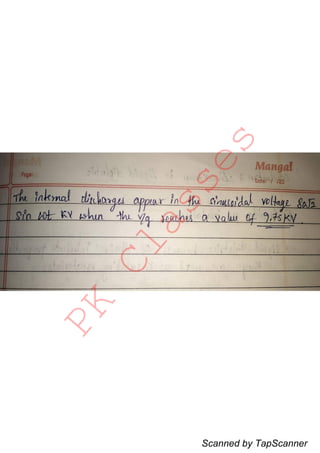 Mangal
Page:
Date: / /20
The internal discharges appear in the sinusoidal voltage 8a√2
sin ωt KV when the v/g reaches a value of 9.75KV.
PK Classes
Scanned by TapScanner